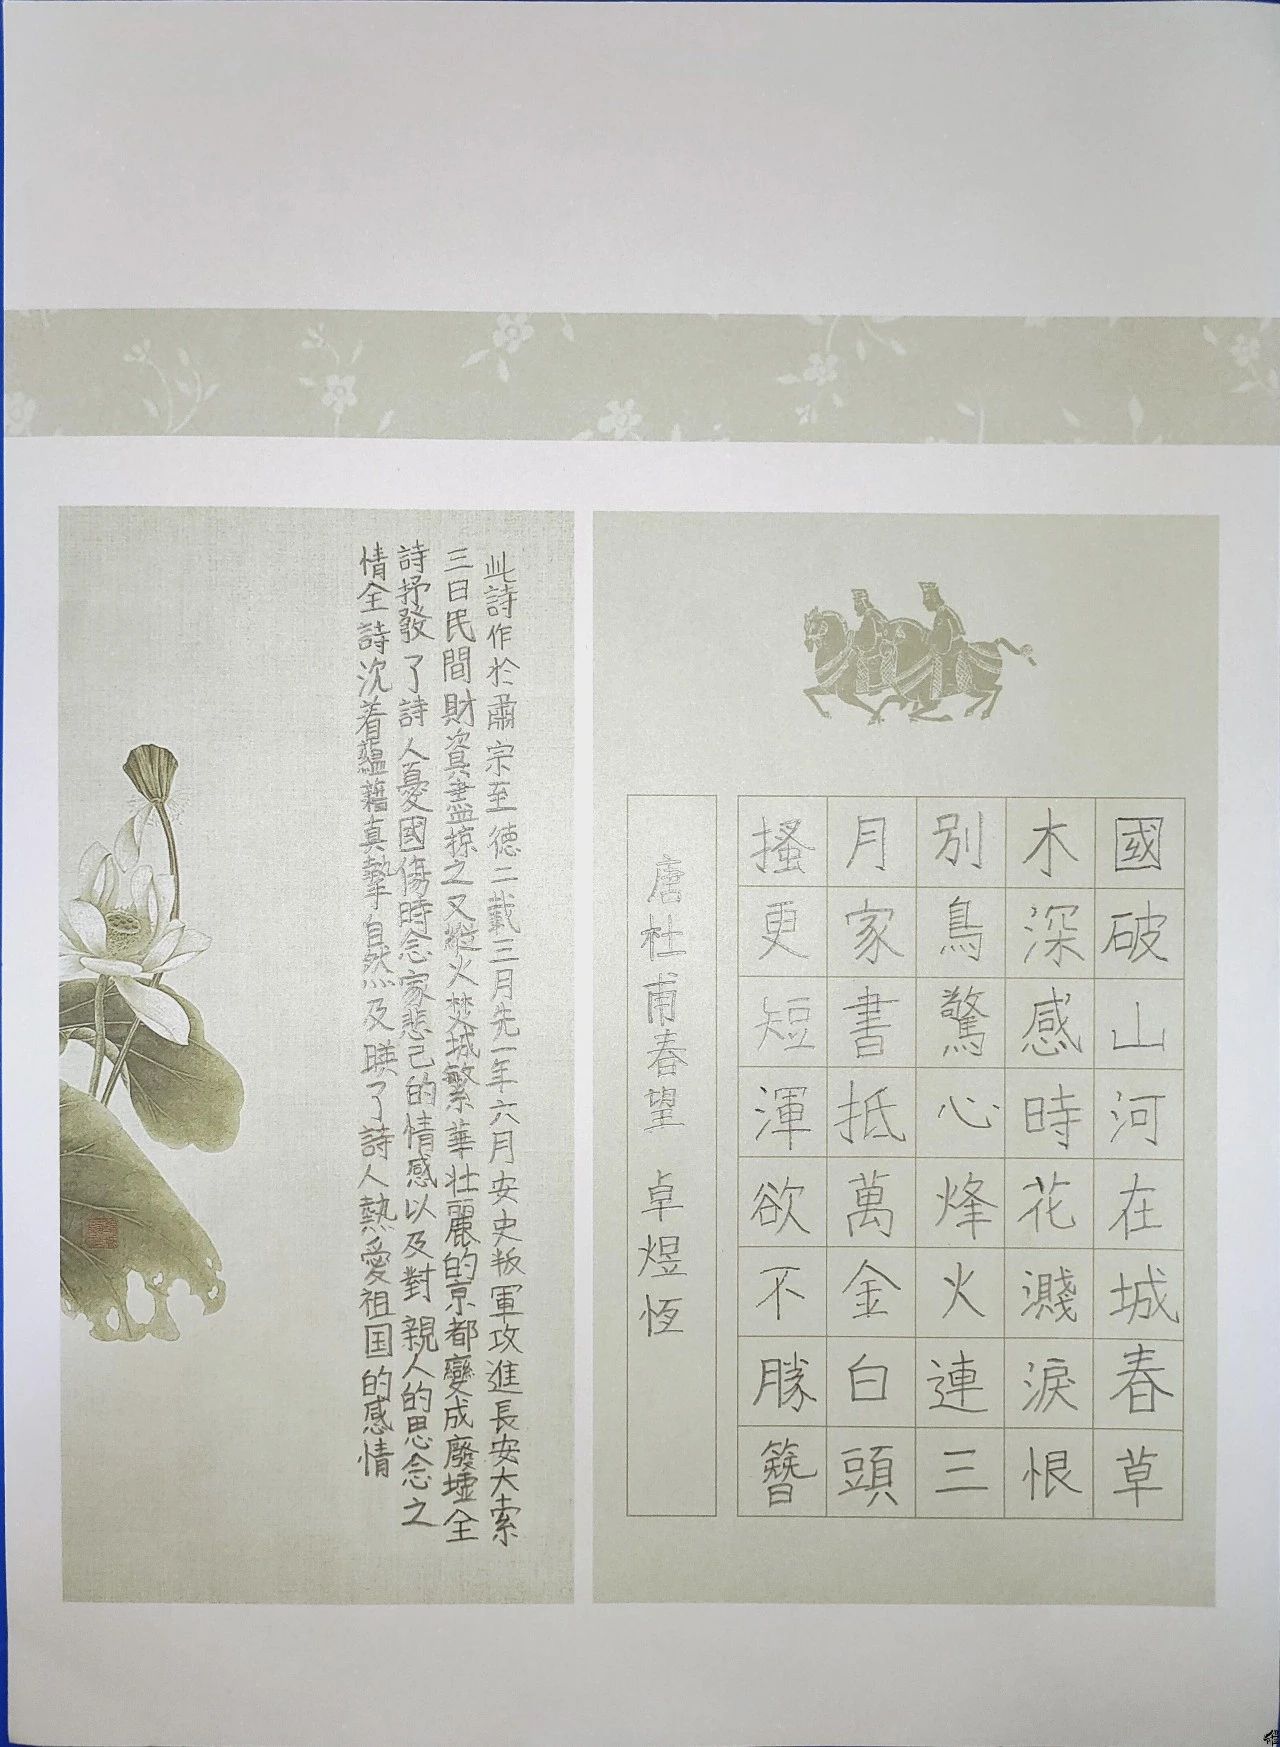 國破山河在城春草
木深感時花濺淚恨
別鳥驚心烽火連三
月家書抵萬金白頭
搔更短渾欲不勝簪
唐杜甫春望 卓煜恆
此詩作於肅宗至德二載三月先一年六月安史叛軍攻進長安大索
三日民間財資盡掠之又縱火焚城繁華壯麗的京都變成廢墟全
詩抒發了詩人憂國傷時念家悲己的情感以及對親人的思念之
情全詩沈着蘊藉真摯自然及映了詩人熱愛祖国的感情